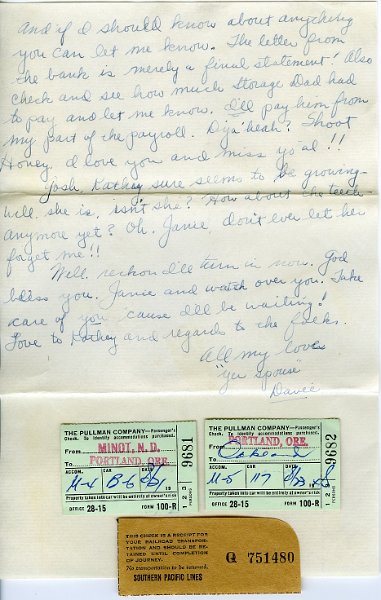 And if I should know about anything
you can let me know. The letter from
the bank is merely a final statement! Also
check and see how much storage Dad had
to pay and let me know. I'll pay him from
my part of the payroll. D'ya heah? Shoot
Honey, I love you and miss yo'al!!
Gosh, Kathey sure seems to be growing-
well, she is, isn't she? How about the teeth
anymore yet? Oh, Janie, don't ever let her
forget me!!
Well, reckon I'll turn in now. God
bless you, Janie and watch over you. Take
care of you 'cause I'll be waiting!
Love to Kathey and regards to the folks.
All my love
"yer spouse"
Davie
THE PULLMAN COMPANY—Passenger's
Check. To identify accommodations purchased.
From MINOT, N.D.
To PORTLAND, ORE.
ACCOM. CAR
M-4 B-6
Property taken into car will be entirely at owner's risk
OFFICE 28-15 FORM 100-R
9681
THE PULLMAN COMPANY—Passenger's
Check. To identify accommodations purchased.
From PORTLAND, ORE.
To Oakland
ACCOM. CAR
M-5 117
Property taken into car will be entirely at owner's risk
OFFICE 28-15 FORM 100-R
9682
THIS CHECK IS A RECEIPT FOR
YOUR RAILROAD TRANSPORTA-
TION AND SHOULD BE RE-
TAINED UNTIL COMPLETION
OF JOURNEY.
No transportation to be returned.
SOUTHERN PACIFIC LINES
Q 751480